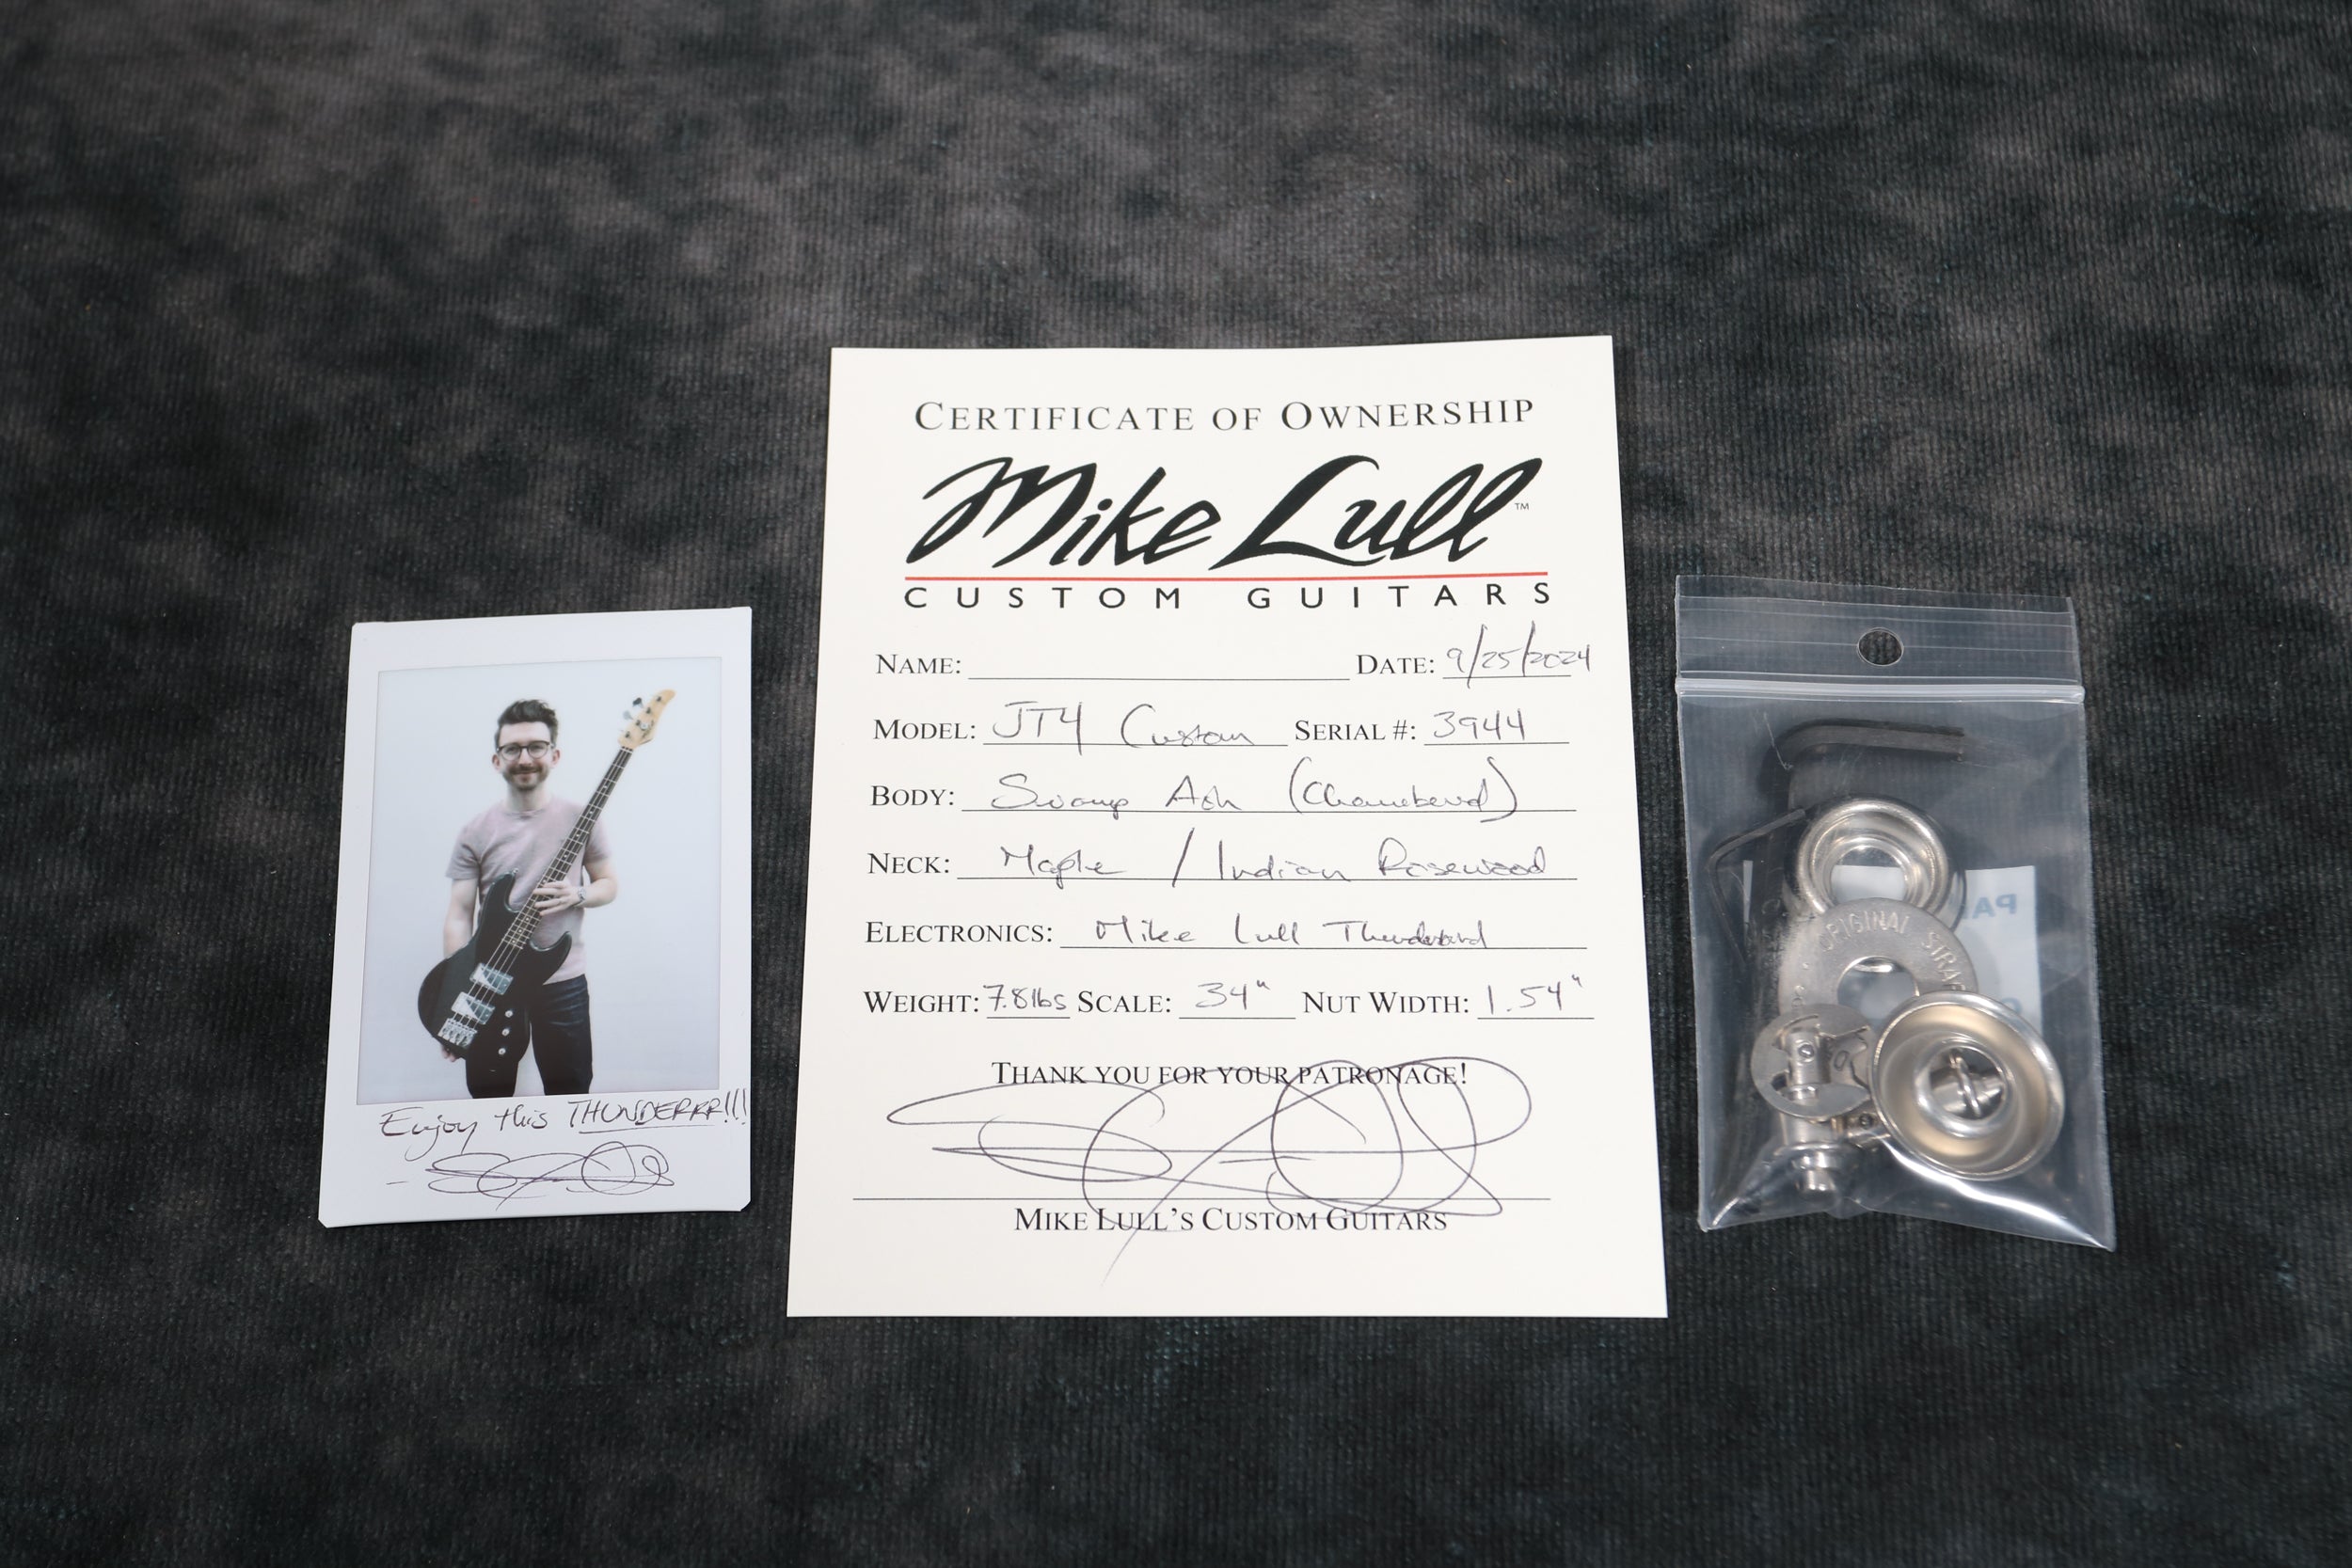 CERTIFICATE OF OWNERSHIP
Mike Lull™
CUSTOM GUITARS
NAME: DATE: 9/25/2024
MODEL: JT4 Custom SERIAL #: 3944
BODY: Swamp Ash (Chambered)
NECK: Maple / Indian Rosewood
ELECTRONICS: Mike Lull Thunderbird
WEIGHT: 7.8lbs SCALE: 34" NUT WIDTH: 1.54"
THANK YOU FOR YOUR PATRONAGE!
MIKE LULL'S CUSTOM GUITARS
Enjoy this THUNDERRR!!!
ORIGINAL